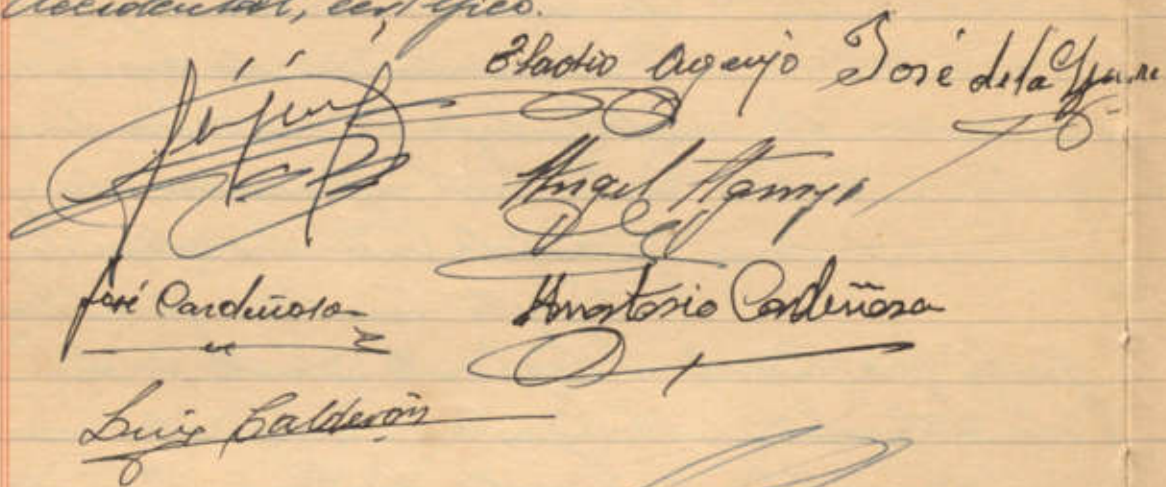 accidental, certifico.
Eladio Asenjo José de la
Angel
José Cardeñosa Anastasio Cardeñosa
Luis Calderón